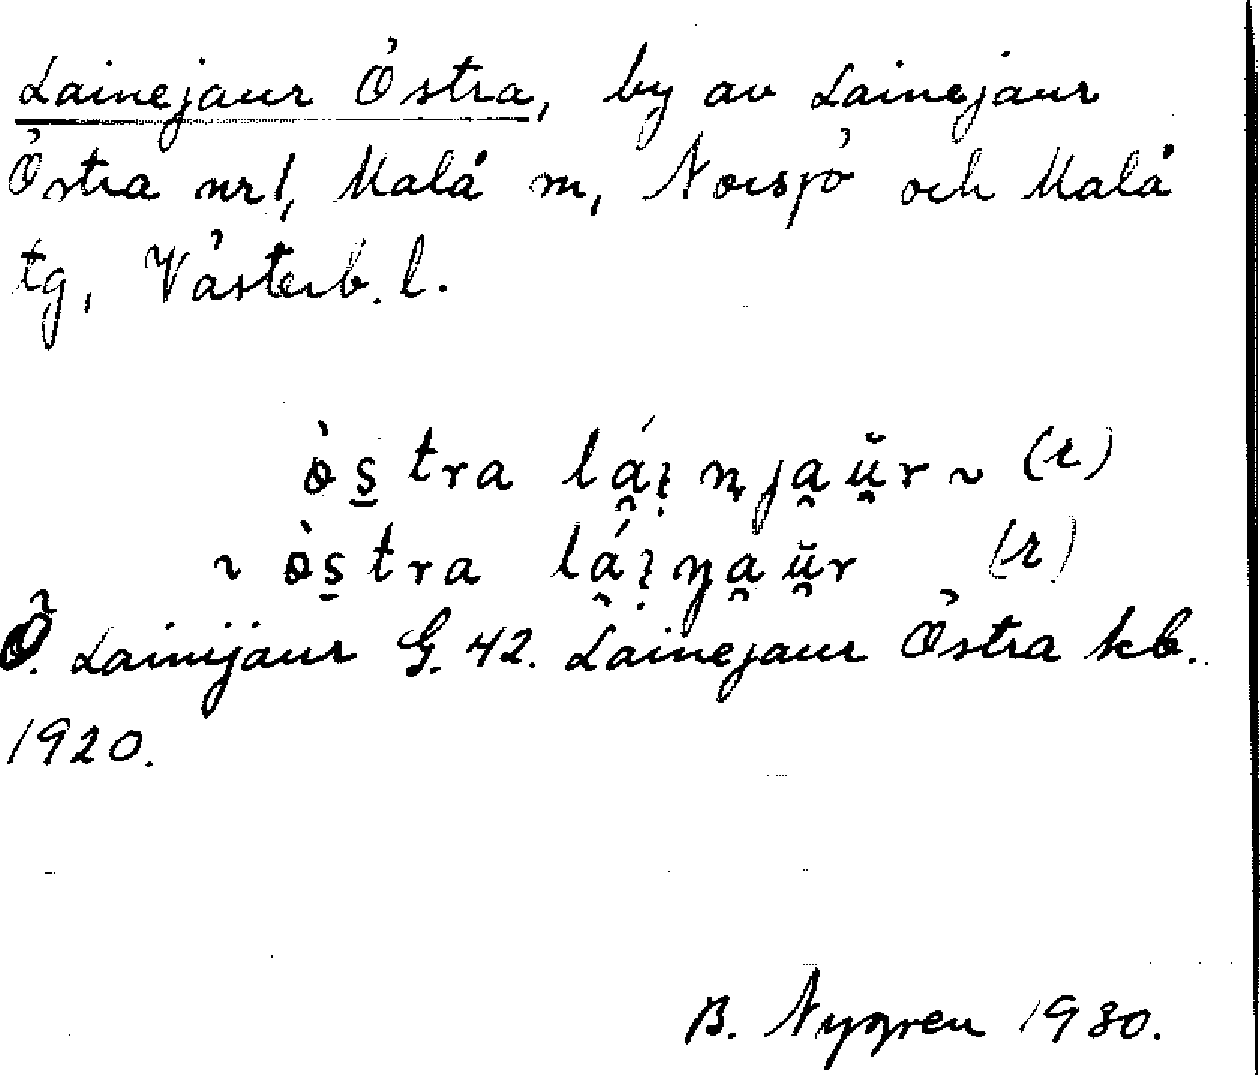 Lainejaur Östra, by av Lainejaur
Östra nr 1, Malå sn, Norsjö och Malå
tg, Västerb. l.
ò̀s̲tra lá̯i̩ n̩ja̯ŭ̯r ~ (r)
~ òs̲tra lá̯i̩ŋa̯ŭ̯r (r)
Ö. Lainijaur G. 42. Lainejaur Östra kb.
1920.
B. Nygren 1930.